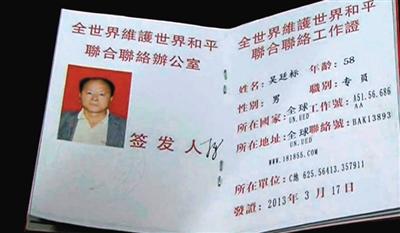 全世界維護世界和平
聯合聯絡辦公室
签发人
全世界維護世界和平
聯合聯絡工作證
姓名：吴廷标 年齡：58
性别：男 職别：专員
所在國家：全球工作號：A51.56.686
UN.UED AA
所在地址：全球聯絡號：BAK13893
UN.UED
www.181855.COM
所在單位：C總 625.56413.357911
發證：2013年3月17日